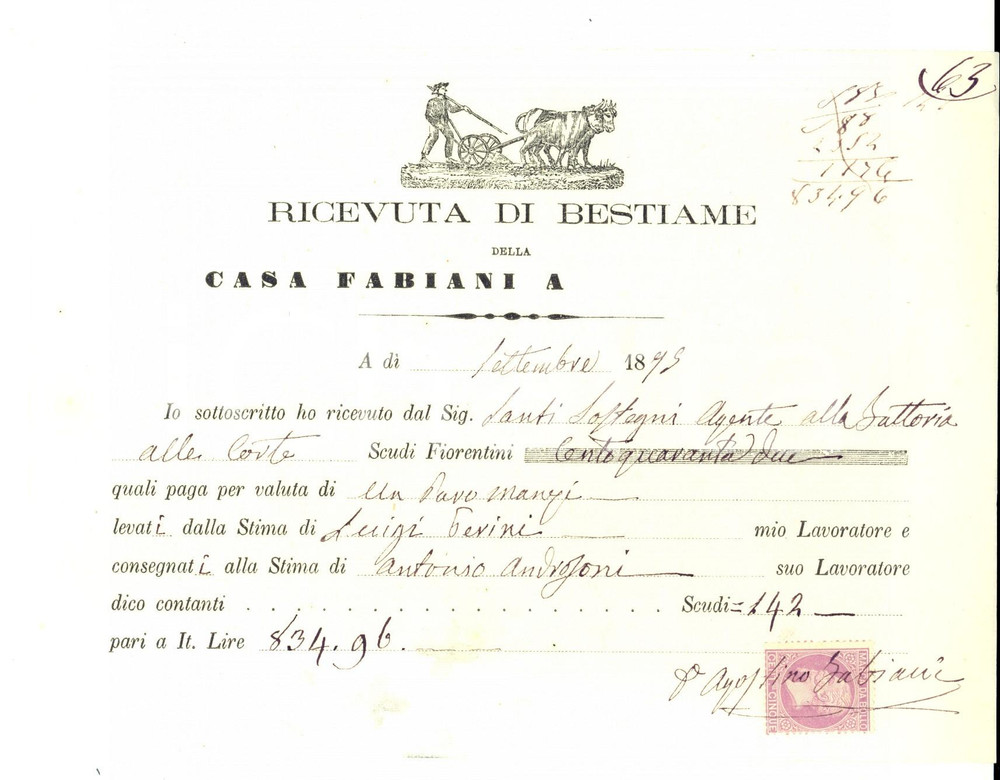 63
588
2352
1176
834.96
RICEVUTA DI BESTIAME
DELLA
CASA FABIANI A
A dì Settembre 1895
Io sottoscritto ho ricevuto dal Sig. Santi Sostegni Agente alla Fattoria
alle Corte Scudi Fiorentini Centoquaranta due
quali paga per valuta di Un Paro manzi
levati dalla Stima di Luigi Terini mio Lavoratore e
consegnati alla Stima di Antonio Androsoni suo Lavoratore
dico contanti . . . . . . . . . . . . . . . . . . Scudi=142
pari a It. Lire 834.96.
Agostino Fabiani
MARCA DA BOLLO
CENT. CINQUE